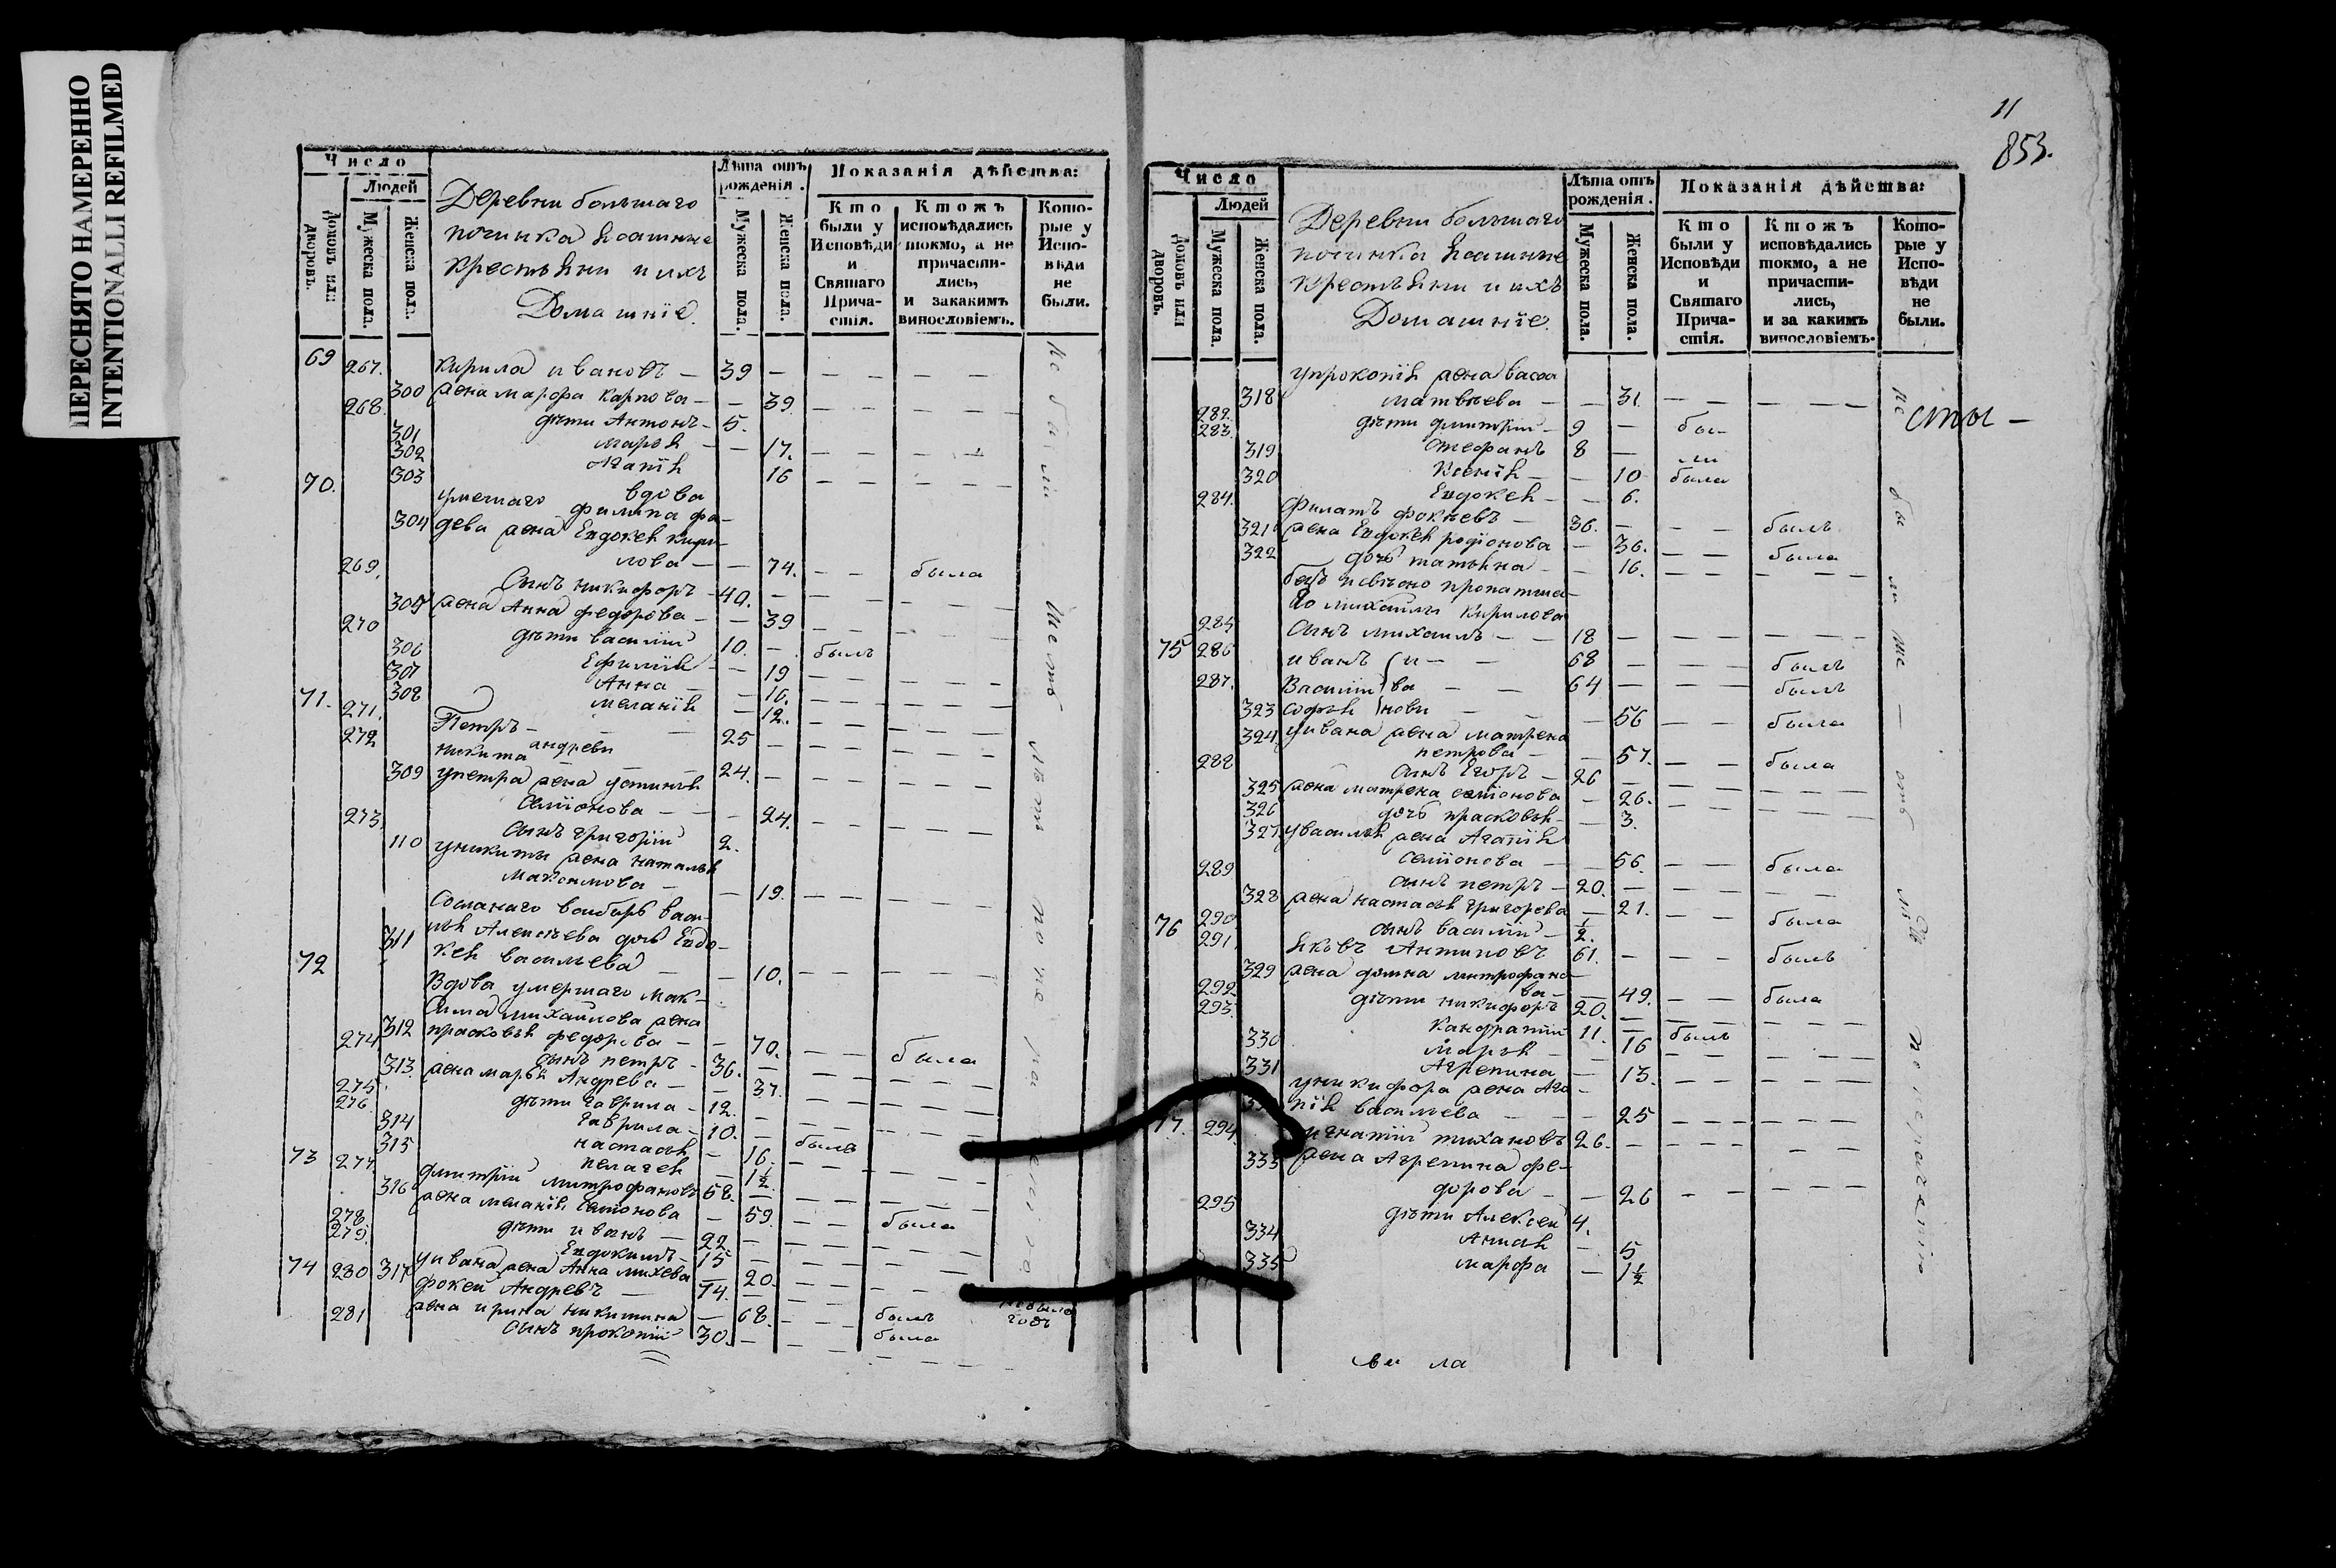 ПЕРЕСНЯТО НАМЕРЕННО
INTENTIONALLI REFILMED
Число
Людей
Домовъ или дворовъ.
Мужеска пола.
Женска пола.
Деревни большаго
починка
крестьяни и ихъ
Домашніе.
Лѣта отъ рожденія.
Мужеска пола.
Женска пола.
Показанія дѣйства:
Кто были у Исповѣди и Святаго Причастія.
Ктожъ исповѣдались токмо, а не причастились, и закакимъ винословіемъ.
Которые у Исповѣди не были.
69 267. Кирила Ивановъ — 39 — — — — —
300 жена Марфа Карпова — — 39. — — — —
268 дѣти Антонъ — 5.
301 Марья — — 17. — — — —
302 Агапія 16 — — — —
70. 303 вдова
умершаго Филипа Фа-
304 дева жена Евдокея Кири-
лова — — 74. — — была
269. Сынъ Никифоръ — 40. — — — — —
305 жена Анна Федорова — — 39 — — — —
270 дѣти Василій 10. — былъ
306 Ефимія — — 19 — — — —
307 Анна — — 16. — — — —
308 Меланія — 12. — — — —
71. 271. Петръ — — — 25 — — — — —
272 Никита андреви — 24. — — — — —
309 у Петра жена Устинья
Семіонова — — — 24. — — — —
273. сынъ Григорій 2.
110 у Никиты жена Наталья
Максимова — — 19. — — — —
Сосланаго
311 Алексѣева дочь Евдо-
кея Васильева — — 10. — — — —
72 Вдова умершаго Мак-
сима Михайлова жена
312 Прасковья Федорова — — 70. — — была
274 сынъ Петръ — 36. — — — — —
313 жена Марья Андрева — — 37. — — — —
275. дѣти Гаврила — 12. — — — — —
276. Гаврила — 10. — былъ
314 Настасья — 16. — — — —
315 Пелагея — 1½
73 277. Дмитрій Митрофановъ 58. — — — — —
316 жена Меланія Семіонова — 59. — — была
278. дѣти Иванъ — 22 — — — — —
279. Евдокимъ — 15 — — — — —
317 у Ивана жена Анна Михева — 20. — — — —
74 280 Фокей Андревъ — 74. — — — былъ
жена Ирина Никитина — 68. — — была
281 сынъ Прокопій — 30. — — — — —
11
853.
Число
Людей
Домовъ или дворовъ.
Мужеска пола.
Женска пола.
Деревни большаго
починка
крестьяни и ихъ
Домашніе.
Лѣта отъ рожденія.
Мужеска пола.
Женска пола.
Показанія дѣйства:
Кто были у Исповѣди и Святаго Причастія.
Ктожъ исповѣдались токмо, а не причастились, и за какимъ винословіемъ.
Которые у Исповѣди не были.
у Прокопія жена Васса
318 Матвѣева — — 31. — — — —
282. дѣти Дмитрій — 9 — бы-
283. Стефанъ 8 — ли
319 Ксенія — — 10 была
320 Евдокея — — 6.
284. Филатъ Фокѣевъ — 36. — — — былъ
321 жена Евдокея Родіонова — 36. — — была
322 дочь Татьяна — — 16. — — — —
Михаилъ Кирилова
285 сынъ Михаилъ — — 18 — — — — —
75 286 Иванъ и — — 68 — — — былъ
287. Василій ва — — 64 — — — былъ
323 Софья нови — — — 56 — — была
324 у Ивана жена Матрена
Петрова — — 57. — — была
288 сынъ Егоръ — 26 — — — — —
325 жена Матрена Семіонова — 26. — — — —
326 дочь Прасковья — — 3.
327 у Василья жена Агапія
Семіонова — — 56. — — была
289 сынъ Петръ — 20. — — — — —
328 жена Настасья Григорева — 21. — — была
290 сынъ Василій — ½.
76 291. Яковъ Антиповъ 61. — — — былъ
329 жена Домна Митрофано-
ва — — 49. — — была
292 дѣти Никифоръ 20. — — — — —
293. Кандратій 11. — былъ
330 Марья — 16 — — — —
331 Агрепина — — 13. — — — —
у Никифора жена Ага-
пія Васильева — — — 25 — — — —
77. 294. Игнатій Тихановъ 26. — — — — —
333 жена Агрепина Фе-
дорова — — 26 — — — —
295 дѣти Алексей 4.
334 Анисья — 5
335 Марфа — 1½